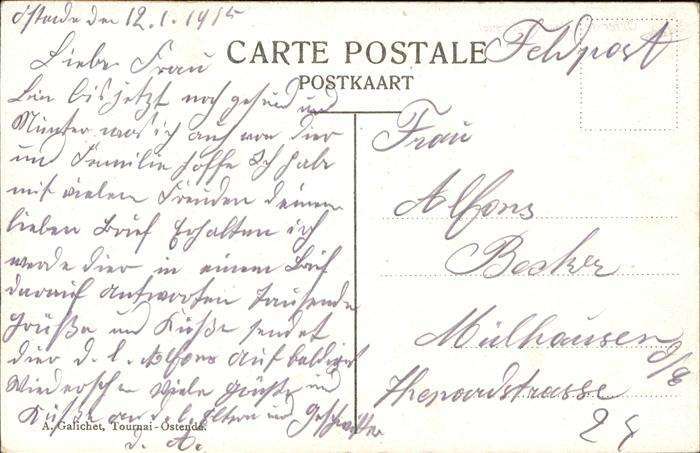 Ostende den 12.1.1915
Liebe Frau
CARTE POSTALE
POSTKAART
Feldpost
bin bis jetzt noch gesund und
Munter was ich auch von dier
und Familie hoffe Ich habe
mit vielen Freuden deinen
lieben Brief Erhalten ich
werde dier in einem Brief
darauf Antworten Tausende
Grüße und Küße sendet
dier d. l. Alfons Auf baldiges
Wiedersehen Viele Grüße und
Küße an d. l. Eltern und Geschwister
d. A.
Frau
Alfons
Becker
Mülhausen i/E
24
A. Galichet, Tournai-Ostende.